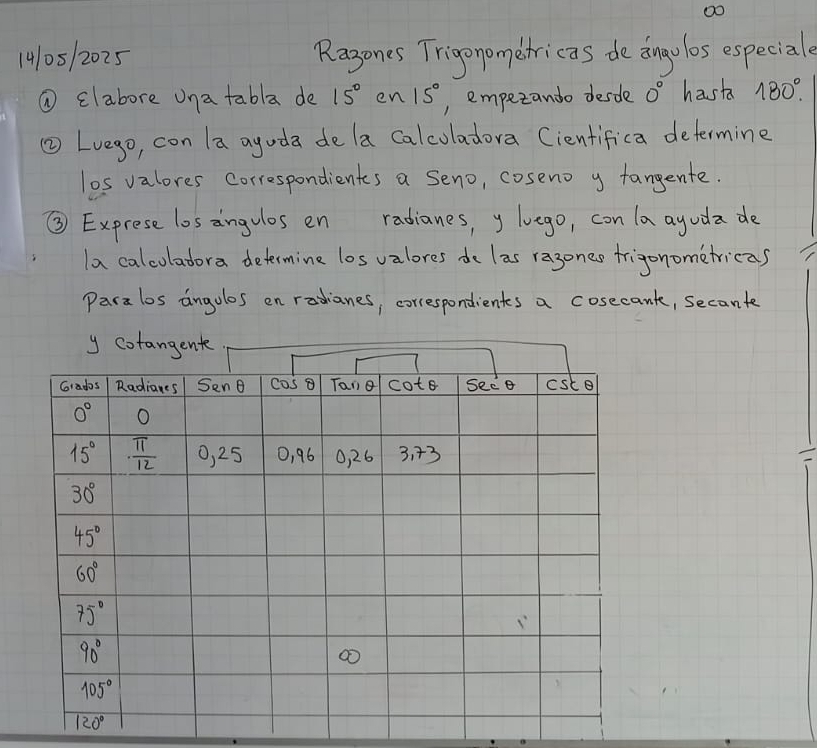 ∞
14/05/2025 Razones Trigonométricas de ángulos especiale
① Elabore una tabla de 15° en 15°, empezando desde 0° hasta 180°.
② Luego, con la ayuda de la Calculadora Cientifica determine
los valores correspondientes a Seno, coseno y tangente.
③ Exprese los ángulos en radianes, y luego, con la ayuda de
la calculadora determine los valores de las razones trigonométricas
Para los ángulos en radianes, correspondientes a cosecante, secante
y cotangente.
Grados Radianes Sen θ Cos θ Tan θ Cot θ Sec θ Csc θ
0° 0
15° π/12 0,25 0,96 0,26 3,73
30°
45°
60°
75°
90° ∞
105°
120°